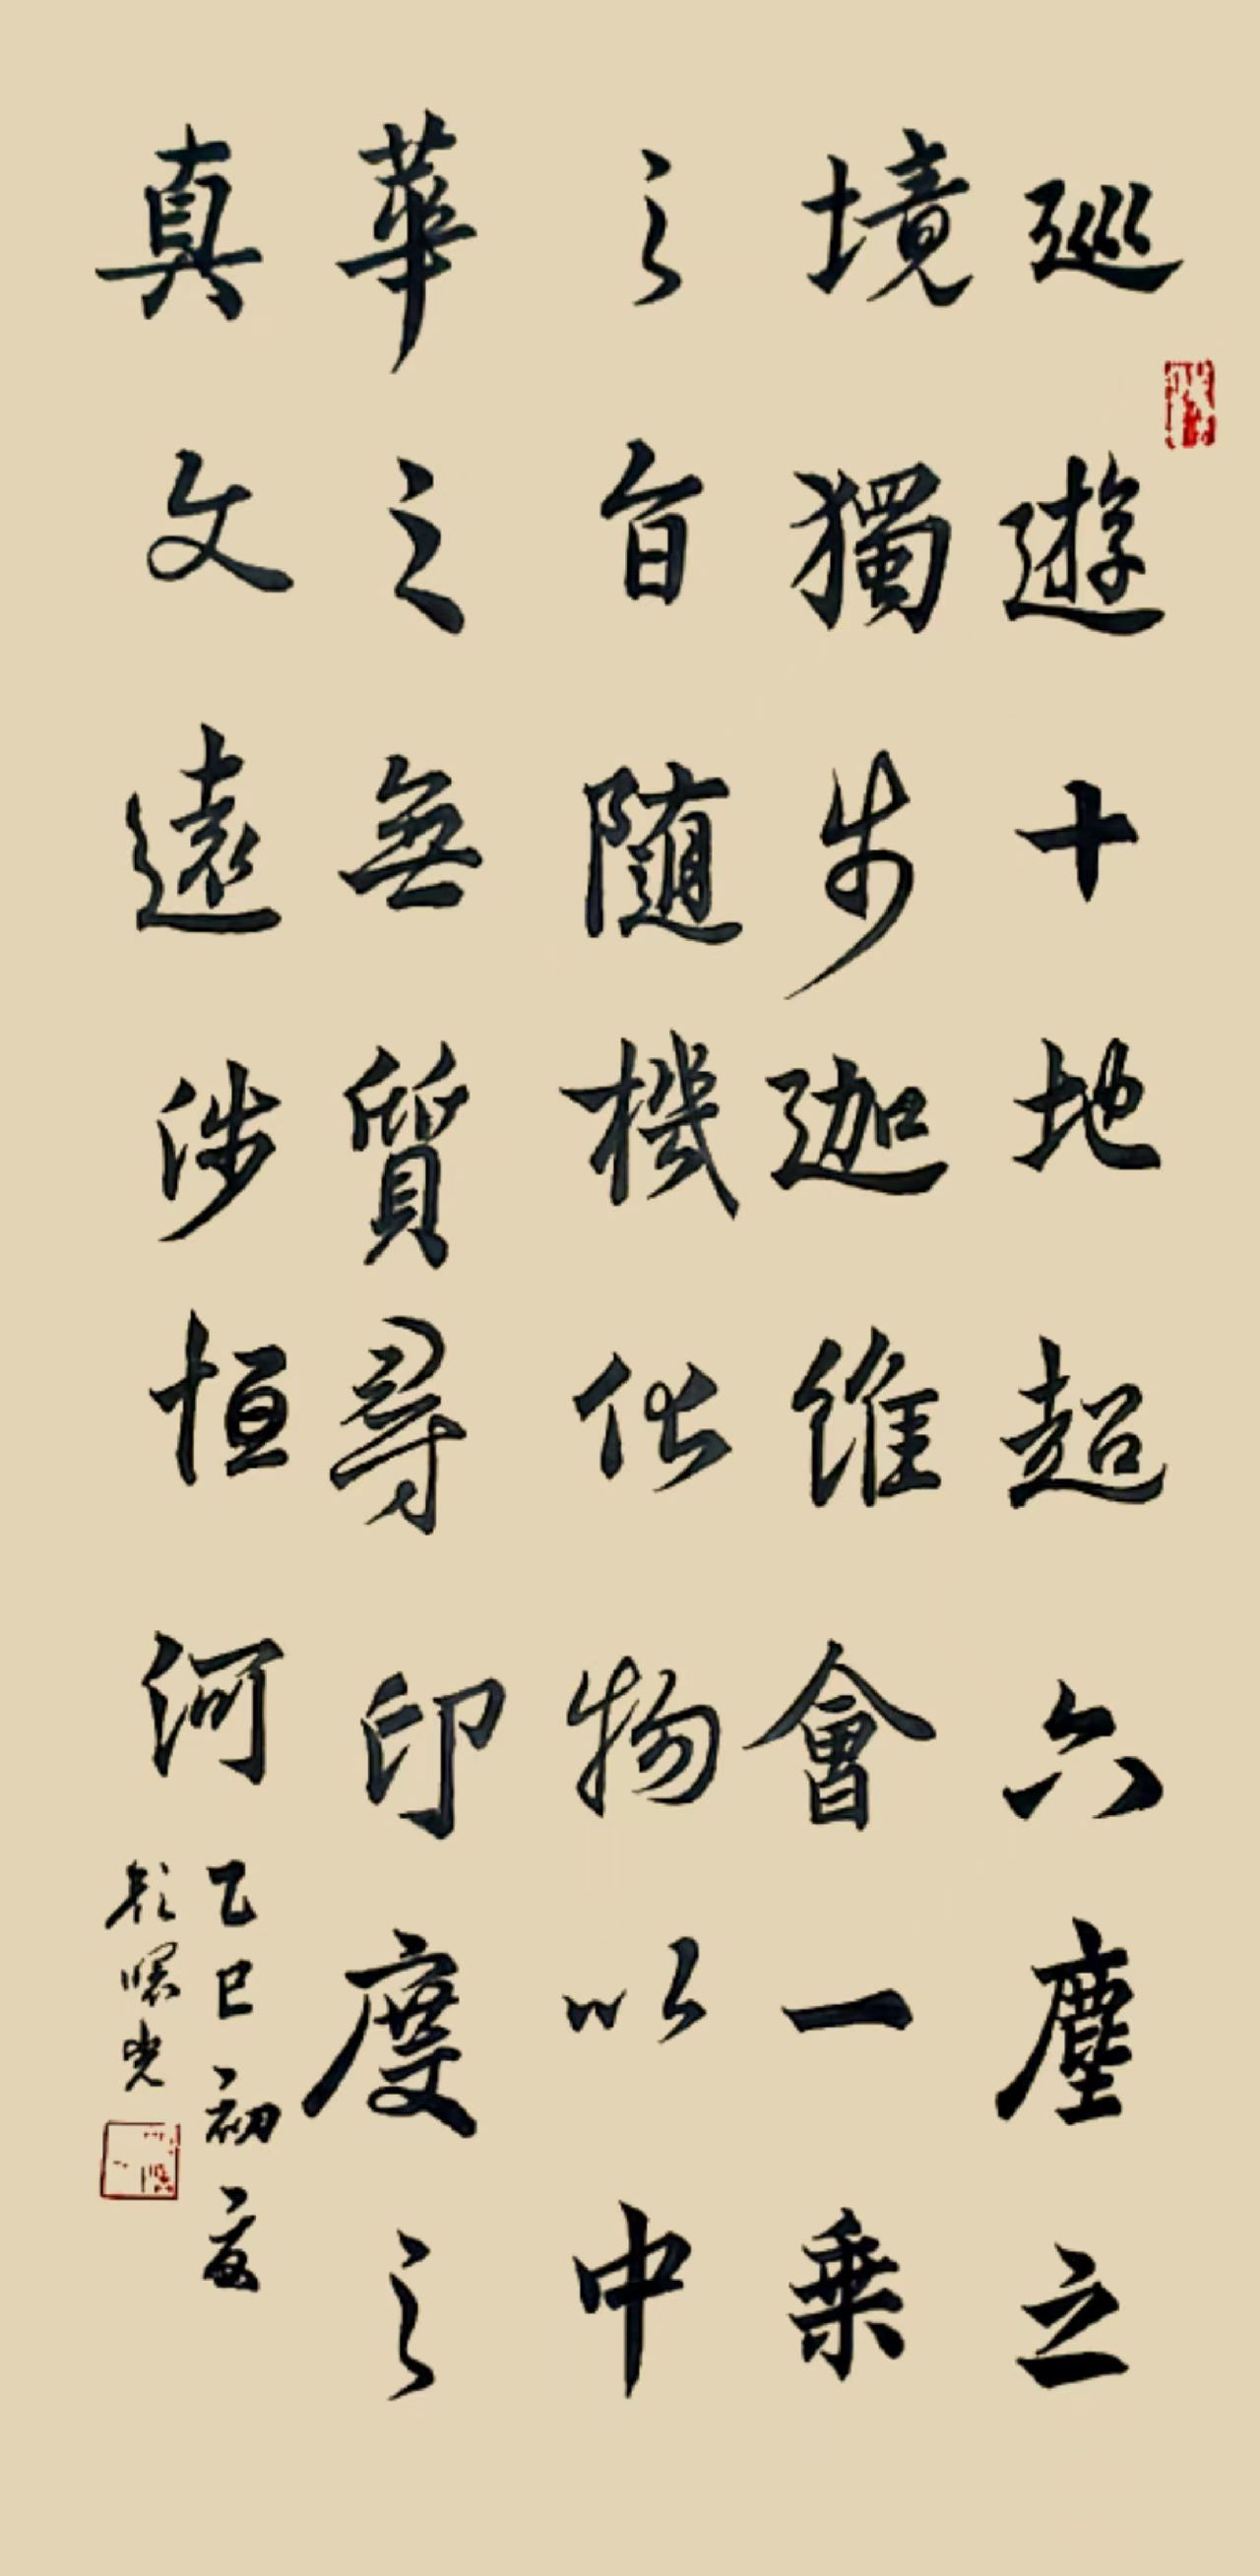 巡遊十地超六塵之
境獨步迦維會一乘
之旨随機化物以中
華之無質尋印度之
真文遠涉恒河
乙巳初夏
曙光